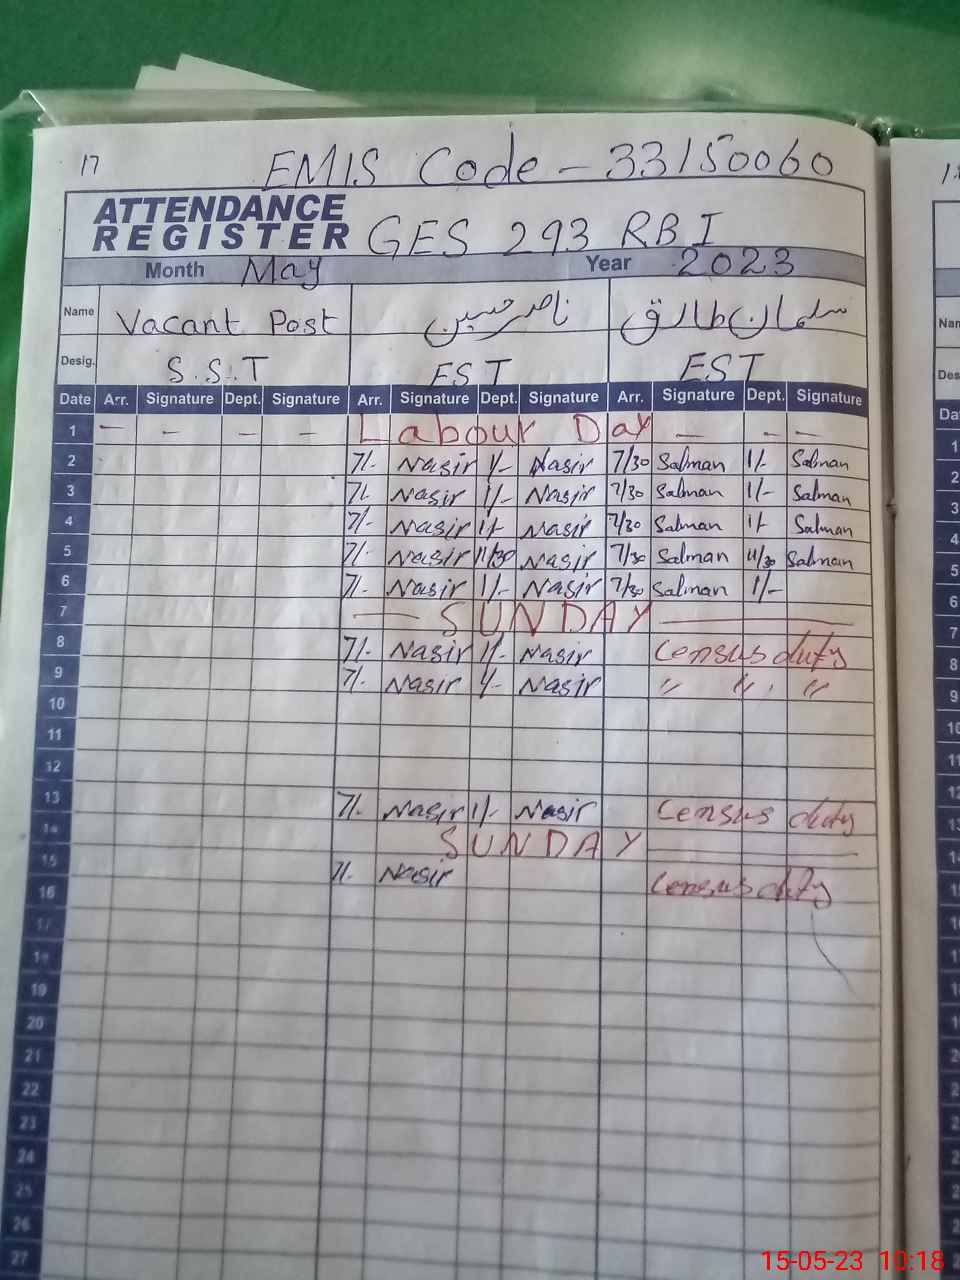 17
EMIS Code - 33150060
ATTENDANCE REGISTER GES 293 RBI
Month May Year 2023
Name Vacant Post ناصر حسین سلمان طارق
Desig. S.S.T EST EST
Date Arr. Signature Dept. Signature Arr. Signature Dept. Signature Arr. Signature Dept. Signature
1 - - - - Labour Day - - -
2 7/- Nasir 1/- Nasir 7/30 Salman 1/- Salman
3 7/- Nasir 1/- Nasir 7/30 Salman 1/- Salman
4 7/- Nasir 1/- Nasir 7/30 Salman 1/- Salman
5 7/- Nasir 11/30 Nasir 7/30 Salman 11/30 Salman
6 7/- Nasir 1/- Nasir 7/30 Salman 1/-
7 SUNDAY
8 7/- Nasir 1/- Nasir Census duty
9 7/- Nasir 1/- Nasir " " "
10
11
12
13 7/- Nasir 1/- Nasir Census duty
14 SUNDAY
15 7/- Nasir Census duty
16
17
18
19
20
21
22
23
24
25
26
27
Date
1
2
3
4
5
6
7
8
9
10
11
12
13
14
15-05-23 10:18